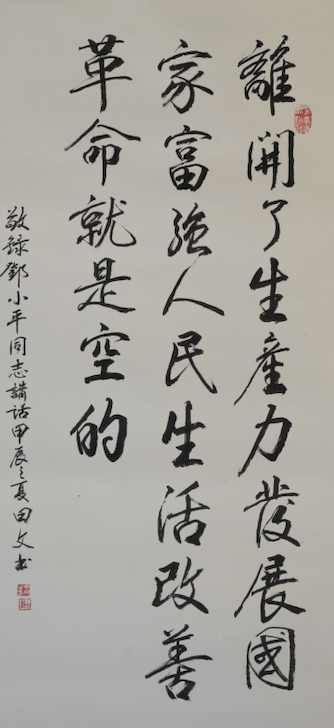 離開了生產力發展國
家富強人民生活改善
革命就是空的
敬錄鄧小平同志講話甲辰之夏田文書